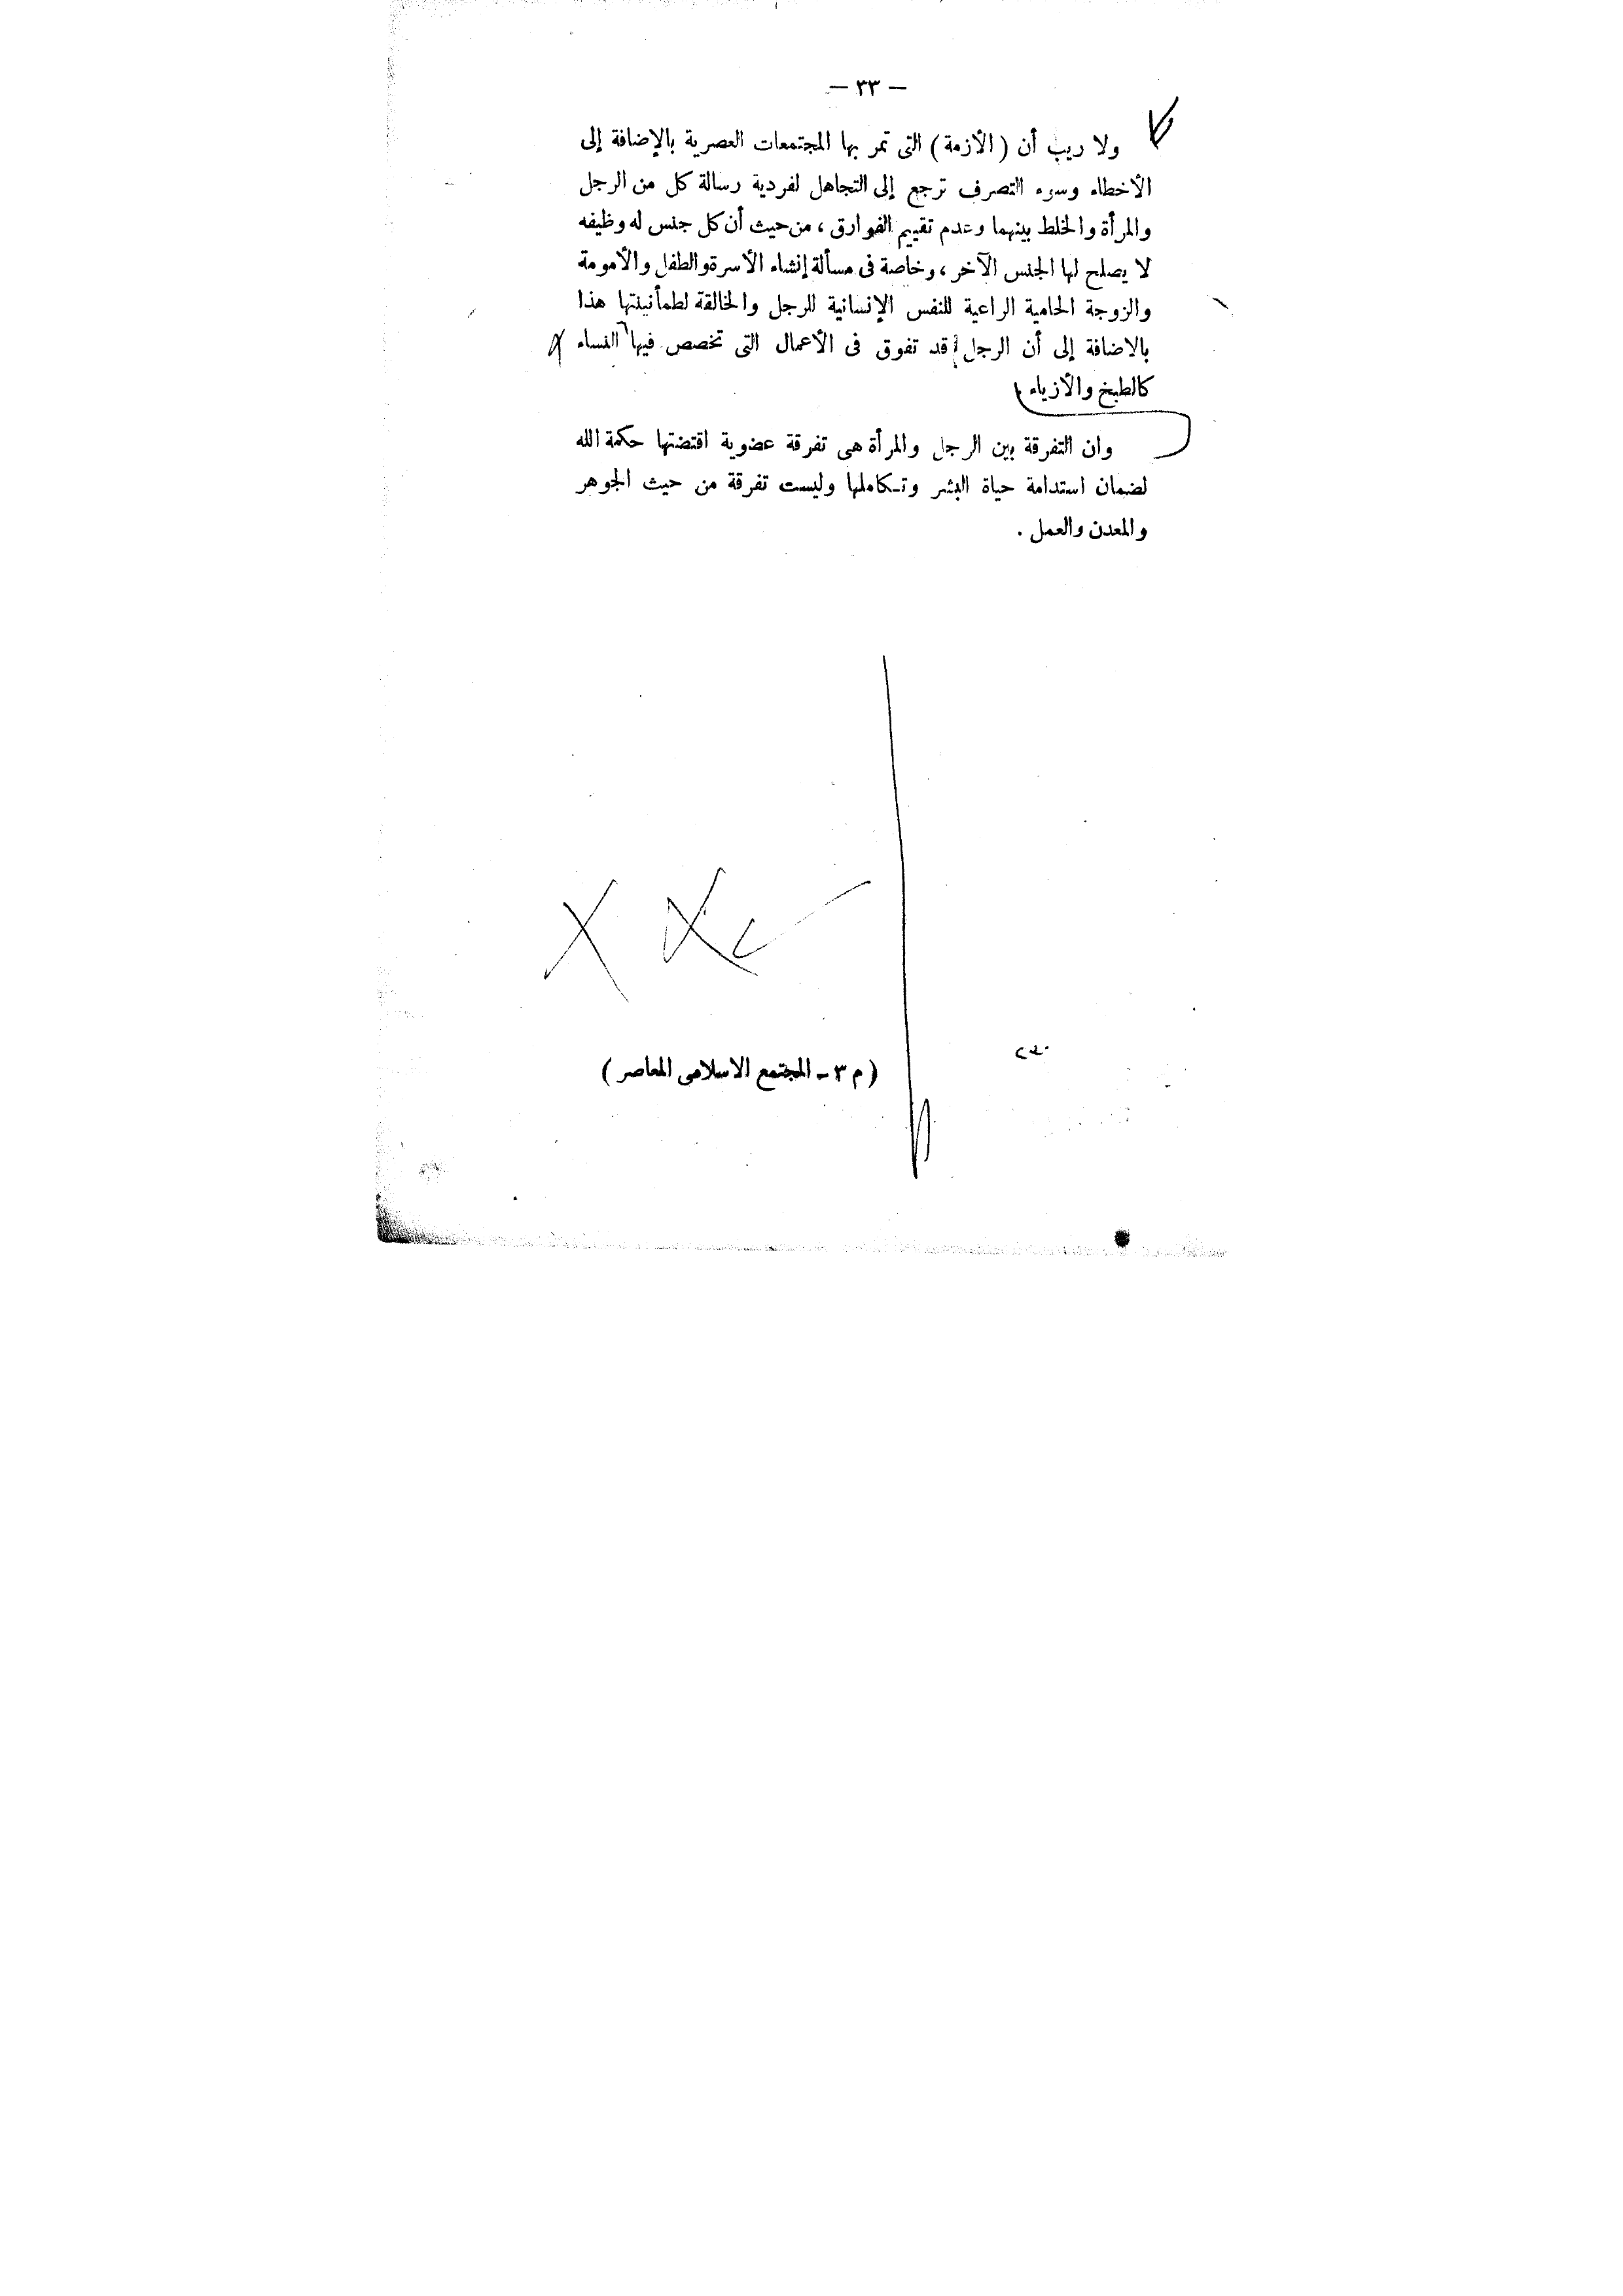 — ٣٣ —
ولا ريب أن ( الأزمة ) التى تمر بها المجتمعات العصرية بالإضافة إلى
الأخطاء وسوء التصرف ترجع إلى التجاهل لفردية رسالة كل من الرجل
والمرأة والخلط بينهما وعدم تقييم الفوارق ، من حيث أن كل جنس له وظيفه
لا يصلح لها الجنس الآخر ، وخاصة فى مسألة إنشاء الأسرة والطفل والأمومة
والزوجة الحامية الراعية للنفس الإنسانية للرجل والخالقة لطمأنينتها هذا
بالاضافة إلى أن الرجل قد تفوق فى الأعمال التى تخصص فيها النساء
كالطبخ والأزياء
وان التفرقة بين الرجل والمرأة هى تفرقة عضوية اقتضتها حكمة الله
لضمان استدامة حياة البشر وتكاملها وليست تفرقة من حيث الجوهر
والمعدن والعمل .
( م ٣ - المجتمع الاسلامى المعاصر )